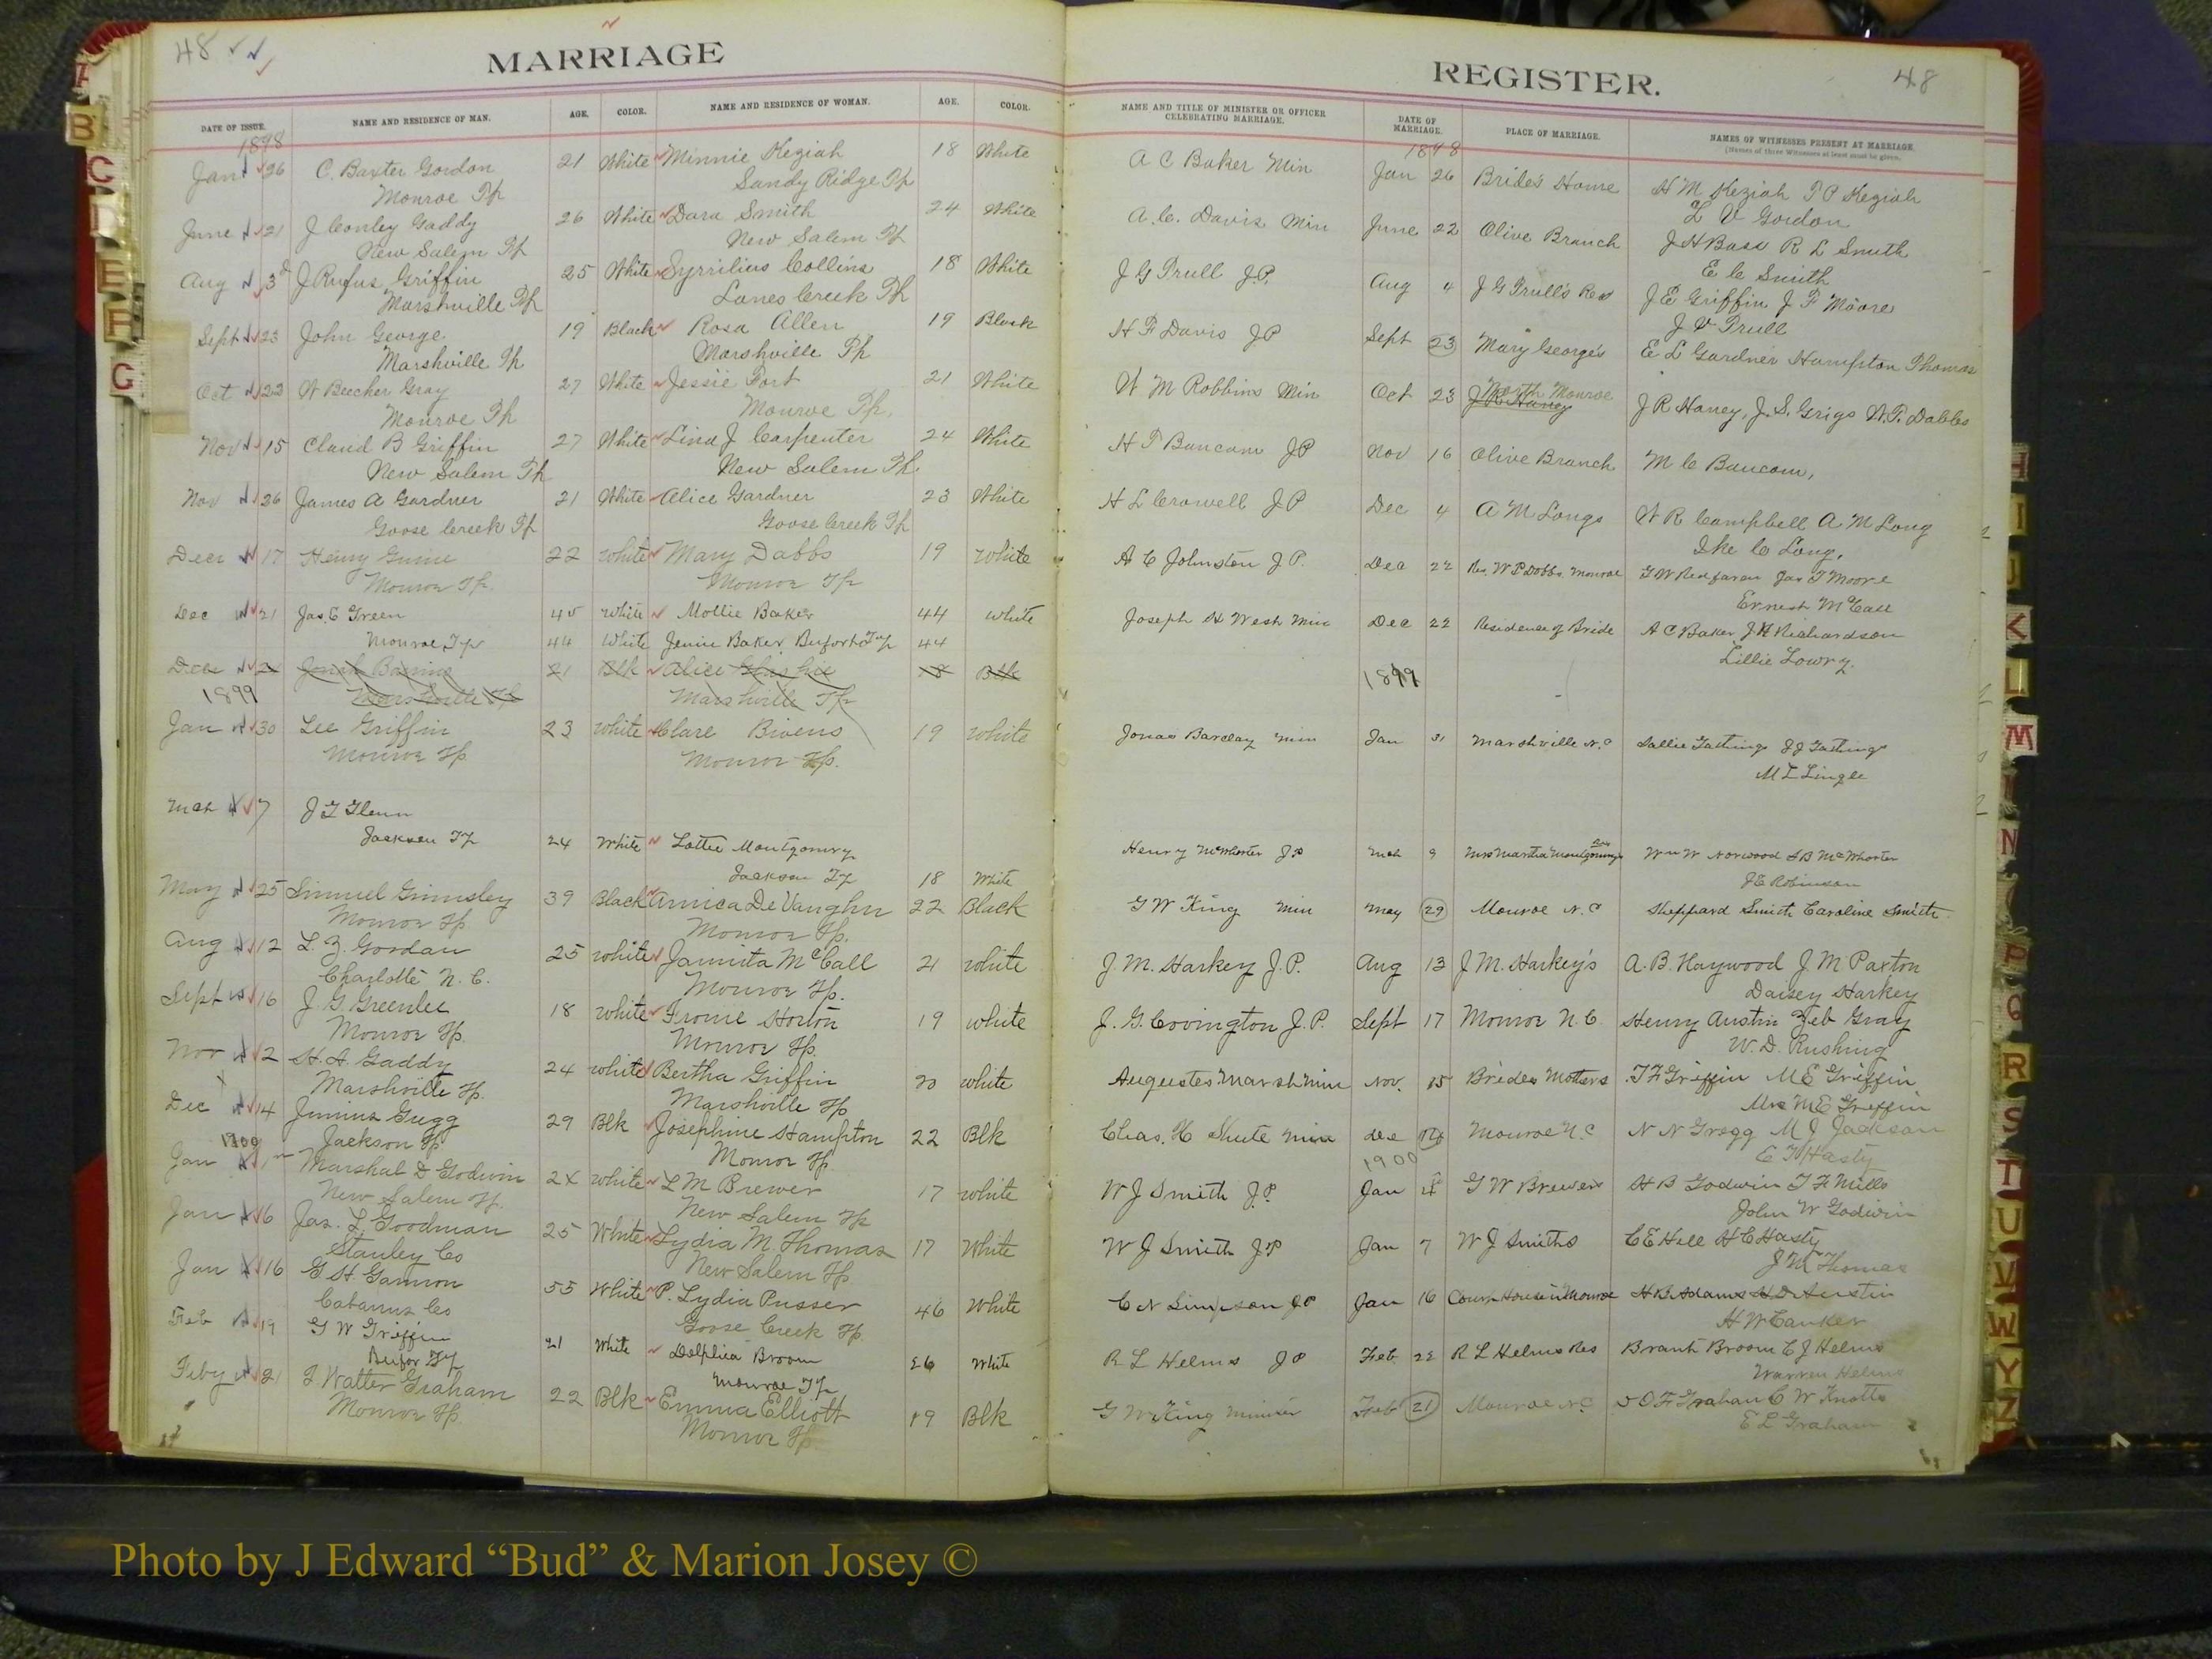 48
MARRIAGE
DATE OF ISSUE. NAME AND RESIDENCE OF MAN. AGE. COLOR. NAME AND RESIDENCE OF WOMAN. AGE. COLOR.
1898
Jan 26 C. Baxter Gordon 21 White Minnie Keziah 18 White
Monroe Tp Sandy Ridge Tp
June 21 J Conley Gaddy 26 White Dora Smith 24 White
New Salem Tp New Salem Tp
Aug 3d J Rufus Griffin 25 White Collins 18 White
Marshville Tp Lanes Creek Tp
Sept 23 John George 19 Black Rosa Allen 19 Black
Marshville Tp Marshville Tp
Oct 22 W Beecher Gray 27 White Jessie Fort 21 White
Monroe Tp Monroe Tp.
Nov 15 Claud B Griffin 27 White Lina J Carpenter 24 White
New Salem Tp New Salem Tp.
Nov 26 James A Gardner 21 White Alice Gardner 23 White
Goose Creek Tp Goose Creek Tp
Decr 17 Henry 22 white Mary Dabbs 19 white
Monroe Tp. Monroe Tp
Dec 21 Jas. C Green 45 white Mollie Baker 44 white
Monroe Tp 44 White Jenie Baker Buford Tp 44
Dec 21 Blk Alice 18 Blk
1899 Marshville Tp Marshville Tp
Jan 30 Lee Griffin 23 white Clare Bivens 19 white
Monroe Tp Monroe Tp.
Mch 7 J T Glenn
Jackson Tp 24 White Lottie Montgomery
Jackson Tp 18 White
May 25 Simuel Grimsley 39 Black Annica DeVaughn 22 Black
Monroe Tp Monroe Tp.
Aug 12 L. Z. Gordon 25 white Jannita McCall 21 white
Charlotte N. C. Monroe Tp.
Sept 16 J. G. Greenlee 18 white Horton 19 white
Monroe Tp. Monroe Tp.
Nov 2 H. A Gaddy 24 white Bertha Griffin 20 white
Marshville Tp. Marshville Tp
Dec 14 Junius Gregg 29 Blk Josephine Hampton 22 Blk
1900 Jackson Tp Monroe Tp
Jan 1 Marshal D Godwin 24 white L M Brewer 17 white
New Salem Tp. New Salem Tp
Jan 6 Jas. L Goodman 25 White Lydia M. Thomas 17 White
Stanley Co New Salem Tp
Jan 16 G H Gannon 55 White P. Lydia Pusser 46 White
Cabarrus Co Goose Creek Tp
Feb 19 G W Griffin 21 White Delphia Broom 26 White
Bufor Tp Monroe Tp
Feby 21 J Walter Graham 22 Blk Emma Elliott 19 Blk
Monroe Tp Monroe Tp
REGISTER.
48
NAME AND TITLE OF MINISTER OR OFFICER CELEBRATING MARRIAGE. DATE OF MARRIAGE. PLACE OF MARRIAGE. NAMES OF WITNESSES PRESENT AT MARRIAGE.
(Names of three Witnesses at least must be given.
1898
A C Baker Min Jan 26 Bride's Home H M Keziah T P Keziah
L V Gordon
A. C. Davis Min June 22 Olive Branch J H Bass R L Smith
E C Smith
J G Trull J.P. Aug 4 J G Trull's Res J E Griffin J F Moore
J V Trull
H F Davis JP Sept 23 Mary George's E L Gardner Hampton Thomas
W M Robbins Min Oct 23 North Monroe J R Haney, J. S. Grigs W. P. Dabbs
H T Baucom JP Nov 16 Olive Branch M C Baucom,
H L Crowell JP Dec 4 A M Longs W R Campbell A M Long
Ike C Long.
A C Johnston J P. Dec 22 Res. W P Dobbs, Monroe T W Redfearn Jas T Moore
Ernest McCall
Joseph H West Min Dec 22 Residence of Bride A C Baker J H Richardson
Lillie Lowry.
1899
Jonas Barclay Min Jan 31 Marshville N.C Sallie Hastings J J Hastings
M L Lingle
Henry McWhorter JP Mch 9 Mrs Martha Montgomery's Res Wm W Norwood S B McWhorter
J E Robinson
G W King Min May 29 Monroe N.C Sheppard Smith Caroline Smith
J. M. Harkey J.P. Aug 13 J M. Harkey's A. B. Haywood J. M Paxton
Daisey Harkey
J. G. Covington J. P. Sept 17 Monroe N. C. Henry Austin Zeb Gray
W. D. Rushing
Augustes Marsh Min Nov. 15 Brides Mothers T F Griffin M E Griffin
Mrs M E Griffin
Chas. H Shute Min Dec 14 Monroe N.C N N Gregg M J Jackson
1900 C T Hasty
W J Smith J.P. Jan 4 G W Brewers H B Godwin T F Mills
John W Godwin
W J Smith JP Jan 7 W J Smiths C E Hill H C Hasty
J M Thomas
C N Simpson JP Jan 16 Court House in Monroe H B Adams H D Austin
H W Cauker
R L Helms JP Feb. 22 R L Helms Res Brant Broom C J Helms
Warren Helms
G W King Minister Feb 21 Monroe N.C O F Graham C W Knotts
E L Graham
B
C
D
E
F
G
H
I
J
K
L
M
N
P
Q
R
S
T
U
V
W
Y
Z
Photo by J Edward “Bud” & Marion Josey ©